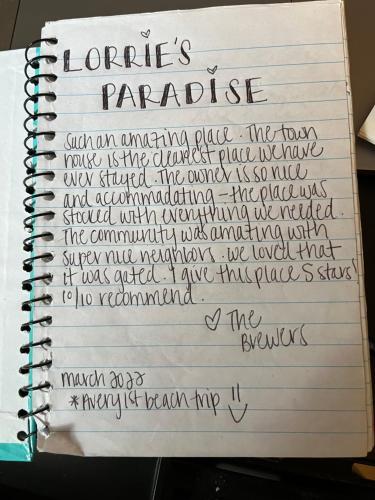 LORRIE'S
PARADISE
Such an amazing place. The town
house is the cleanest place we have
ever stayed. The owner is so nice
and accommadating - the place was
stocked with everything we needed.
The community was amazing with
super nice neighbors. We loved that
it was gated. I give this place 5 stars!
10/10 recommend.
♡ The
Brewers
march 2022
*Avery 1st beach trip !!